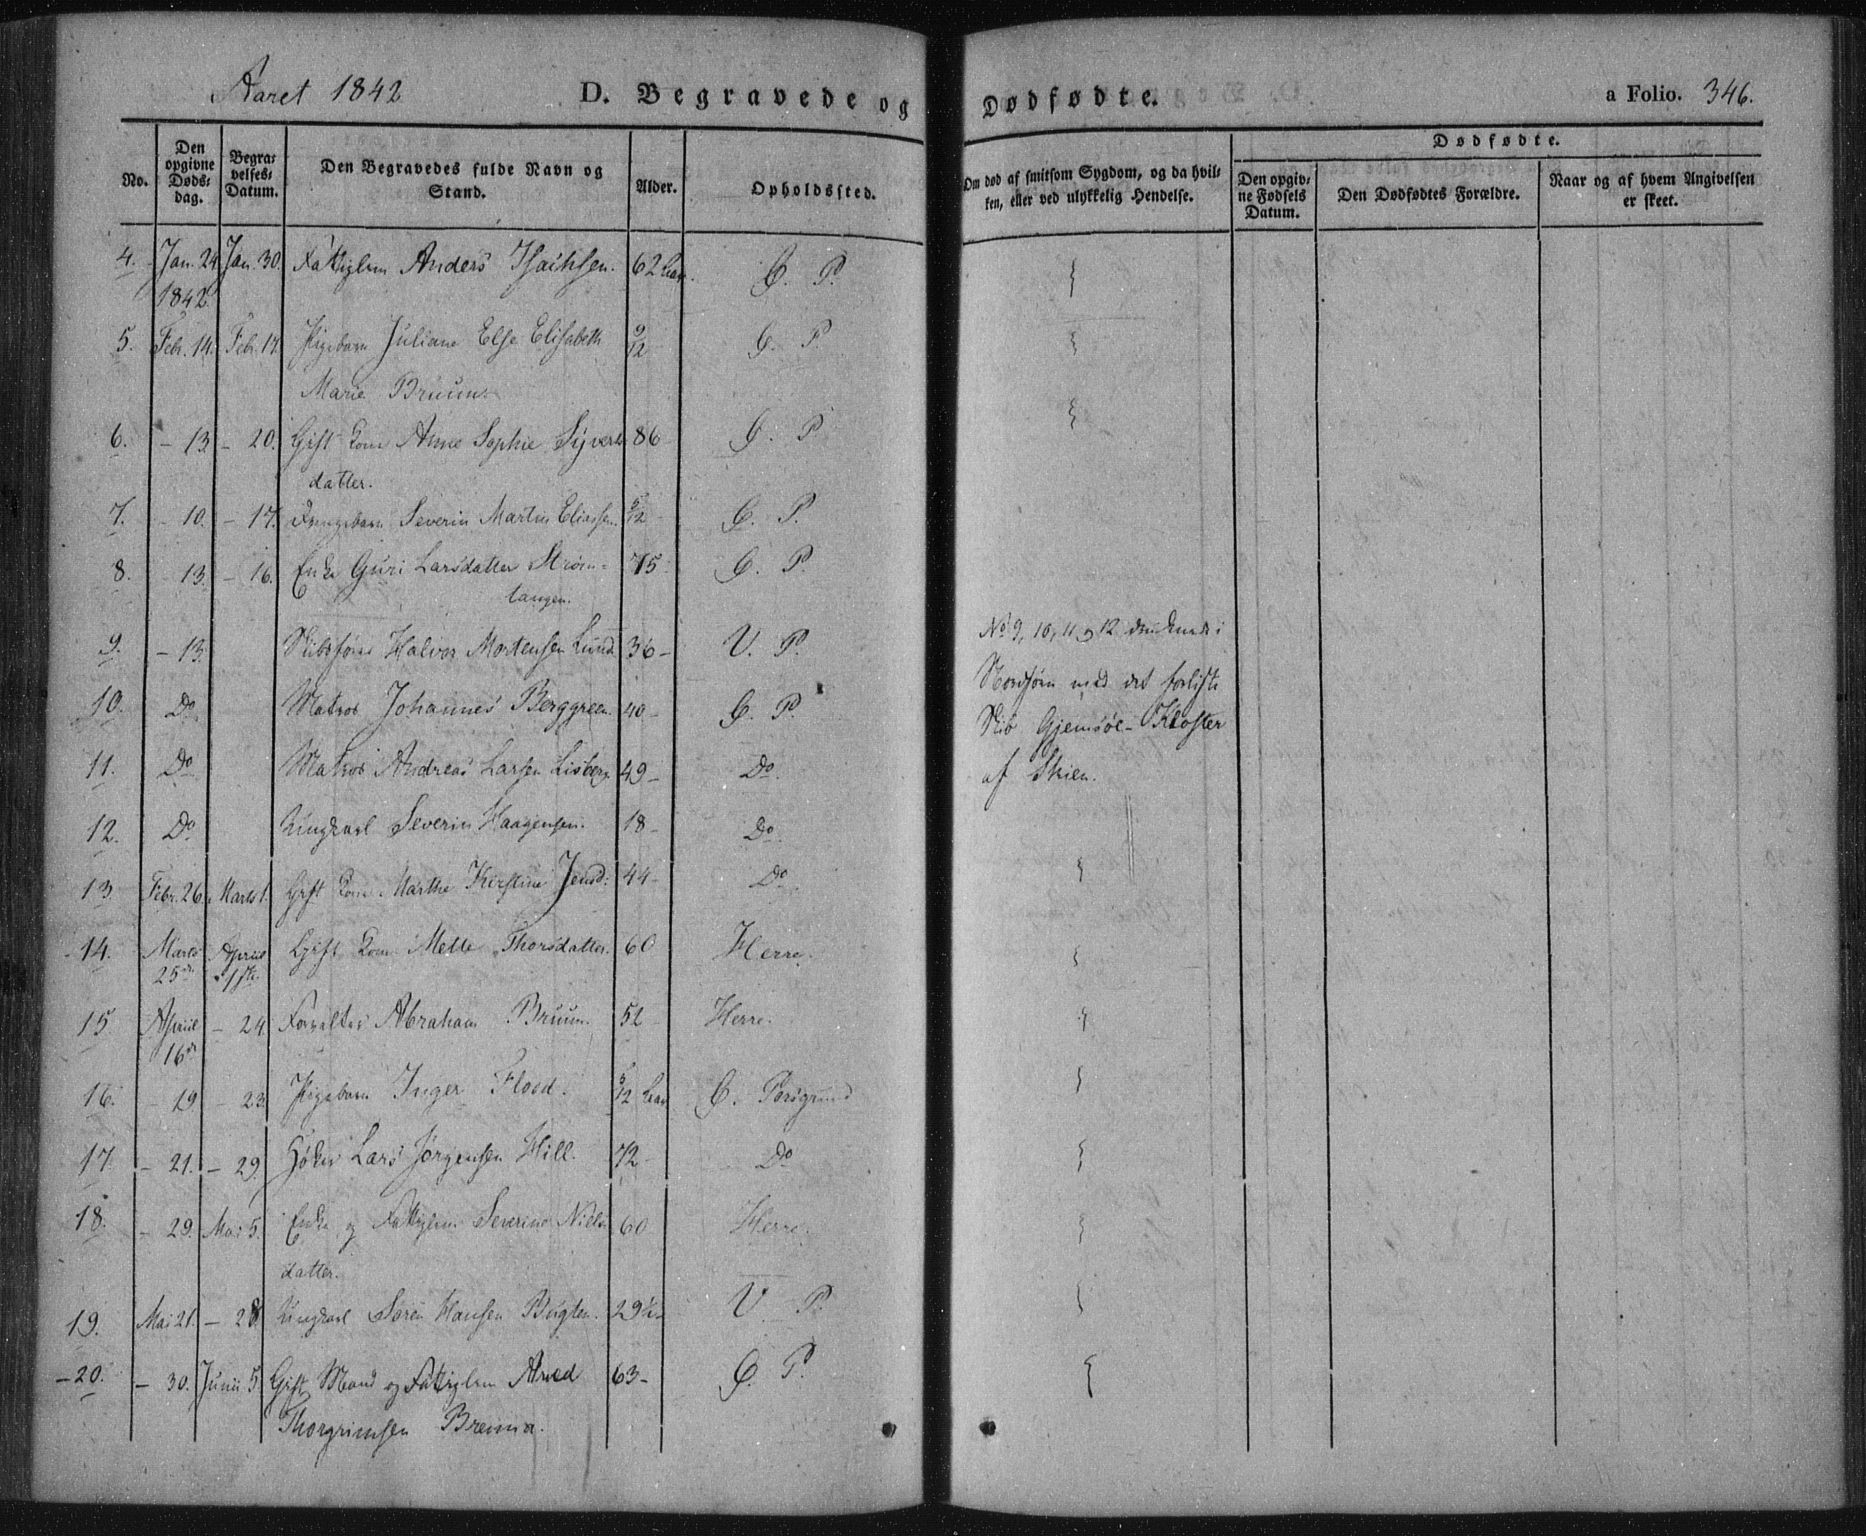 Aaret 1842 D. Begravede og Dødfødte. a Folio. 346.
Dødfødte.
No. Den opgivne Døds-dag. Begra-velses-Datum. Den Begravedes fulde Navn og Stand. Alder. Opholdssted. Om død af smitsom Sygdom, og da hvil-ken, eller ved ulykkelig Hendelse. Den opgiv-ne Fødsels Datum. Den Dødfødtes Forældre. Naar og af hvem Angivelsen er skeet.
4. Jan. 24 Jan. 30. Fattiglem Anders Isachsen. 62 Aar. Ø. P.
1842.
5. Febr. 14. Febr. 17. Pigebarn Juliane Else Elisabeth 9/12 Ø. P.
Marie Bruun
6. – 13. – 20. Gift Kone Anne Sophie Syverts 86 Ø. P.
datter.
7. – 10. – 17. Drengebarn Severin Martin Eliassen. /12 Ø. P.
8. – 13. – 16. Enke Guri Larsdatter Strøm- 75. Ø. P.
tangen.
9. – 13. Skibsfører Halvor Mortensen Lund 36 – V. P. No 9, 10, 11 og 12 druknede i
10. Do Matros Johannes Berggreen. 40 – Ø. P. Nordsøen med det forliste
Skib Gjemsøe-Kloster
11. Do Matros Andreas Larsen Lisberg 49 – Do. af Skien.
12. Do Ungkarl Severin Haagensen. 18 – Do
13. Febr. 26. Marts 1. Gift Kone Marthe Kirstine Jensd: 44 – Do
14. Marts Apriil Gift Kone Mette Thorsdatter. 60 Herre.
25de 1ste.
15 Apriil – 24. Forvalter Abraham Bruun. 52 Herre.
16de
16. – 19 – 23. Pigebarn Inger Flood. /12 Aar Ø. Porsgrund
17. – 21. – 29. Høker Lars Jørgensen Hill. 72 – Do
18. – 29. Mai 5. Enke og Fattiglem Severine Niels 60 Herre.
datter.
19. Mai 21. – 28. Ungkarl Søren Hansen Bugten. 29½ – V. P.
– 20. – 30. Junii 5. Gift Mand og Fattiglem Arved 63 – Ø. P.
Thorgrimsen Brenna.